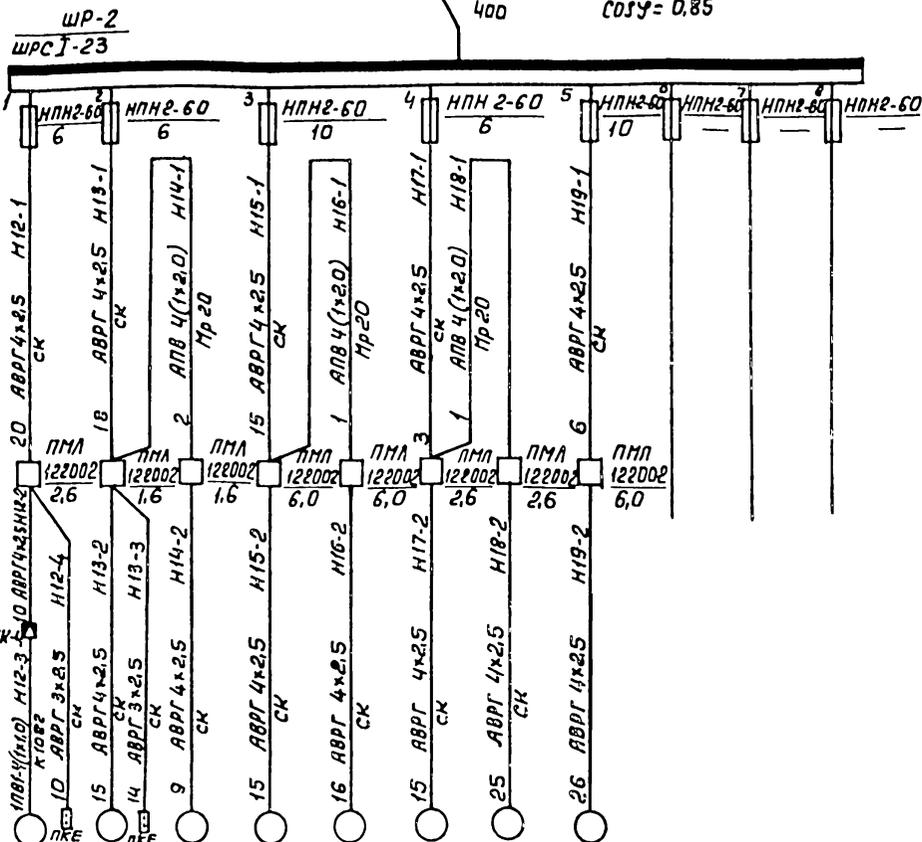 ШР-2
ШРС I-23
400
cosφ= 0,85
1
НПН2-60
6
2
НПН2-60
6
3
НПН2-60
10
4
НПН 2-60
6
5
НПН2-60
10
6
НПН2-60
—
7
НПН2-60
—
8
НПН2-60
—
20 АВРГ 4×2,5 Н12-1
СК
18 АВРГ 4×2,5 Н13-1
СК
2 АПВ 4(1×2,0) Н14-1
Мр20
15 АВРГ 4×2,5 Н15-1
СК
1 АПВ 4(1×2,0) Н16-1
Мр20
3 АВРГ 4×2,5 Н17-1
СК
1 АПВ 4(1×2,0) Н18-1
Мр20
6 АВРГ 4×2,5 Н19-1
СК
ПМЛ
122002
2,6
ПМЛ
122002
1,6
ПМЛ
122002
1,6
ПМЛ
122002
6,0
ПМЛ
122002
6,0
ПМЛ
122002
2,6
ПМЛ
122002
2,6
ПМЛ
122002
6,0
10 АВРГ 4×2,5 Н12-2
Н12-3
10 АВРГ 3×2,5 Н12-4
СК
15 АВРГ 4×2,5 Н13-2
СК
14 АВРГ 3×2,5 Н13-3
СК
9 АВРГ 4×2,5 Н14-2
СК
15 АВРГ 4×2,5 Н15-2
СК
16 АВРГ 4×2,5 Н16-2
СК
15 АВРГ 4×2,5 Н17-2
СК
25 АВРГ 4×2,5 Н18-2
СК
26 АВРГ 4×2,5 Н19-2
ПКЕ
ПКЕ